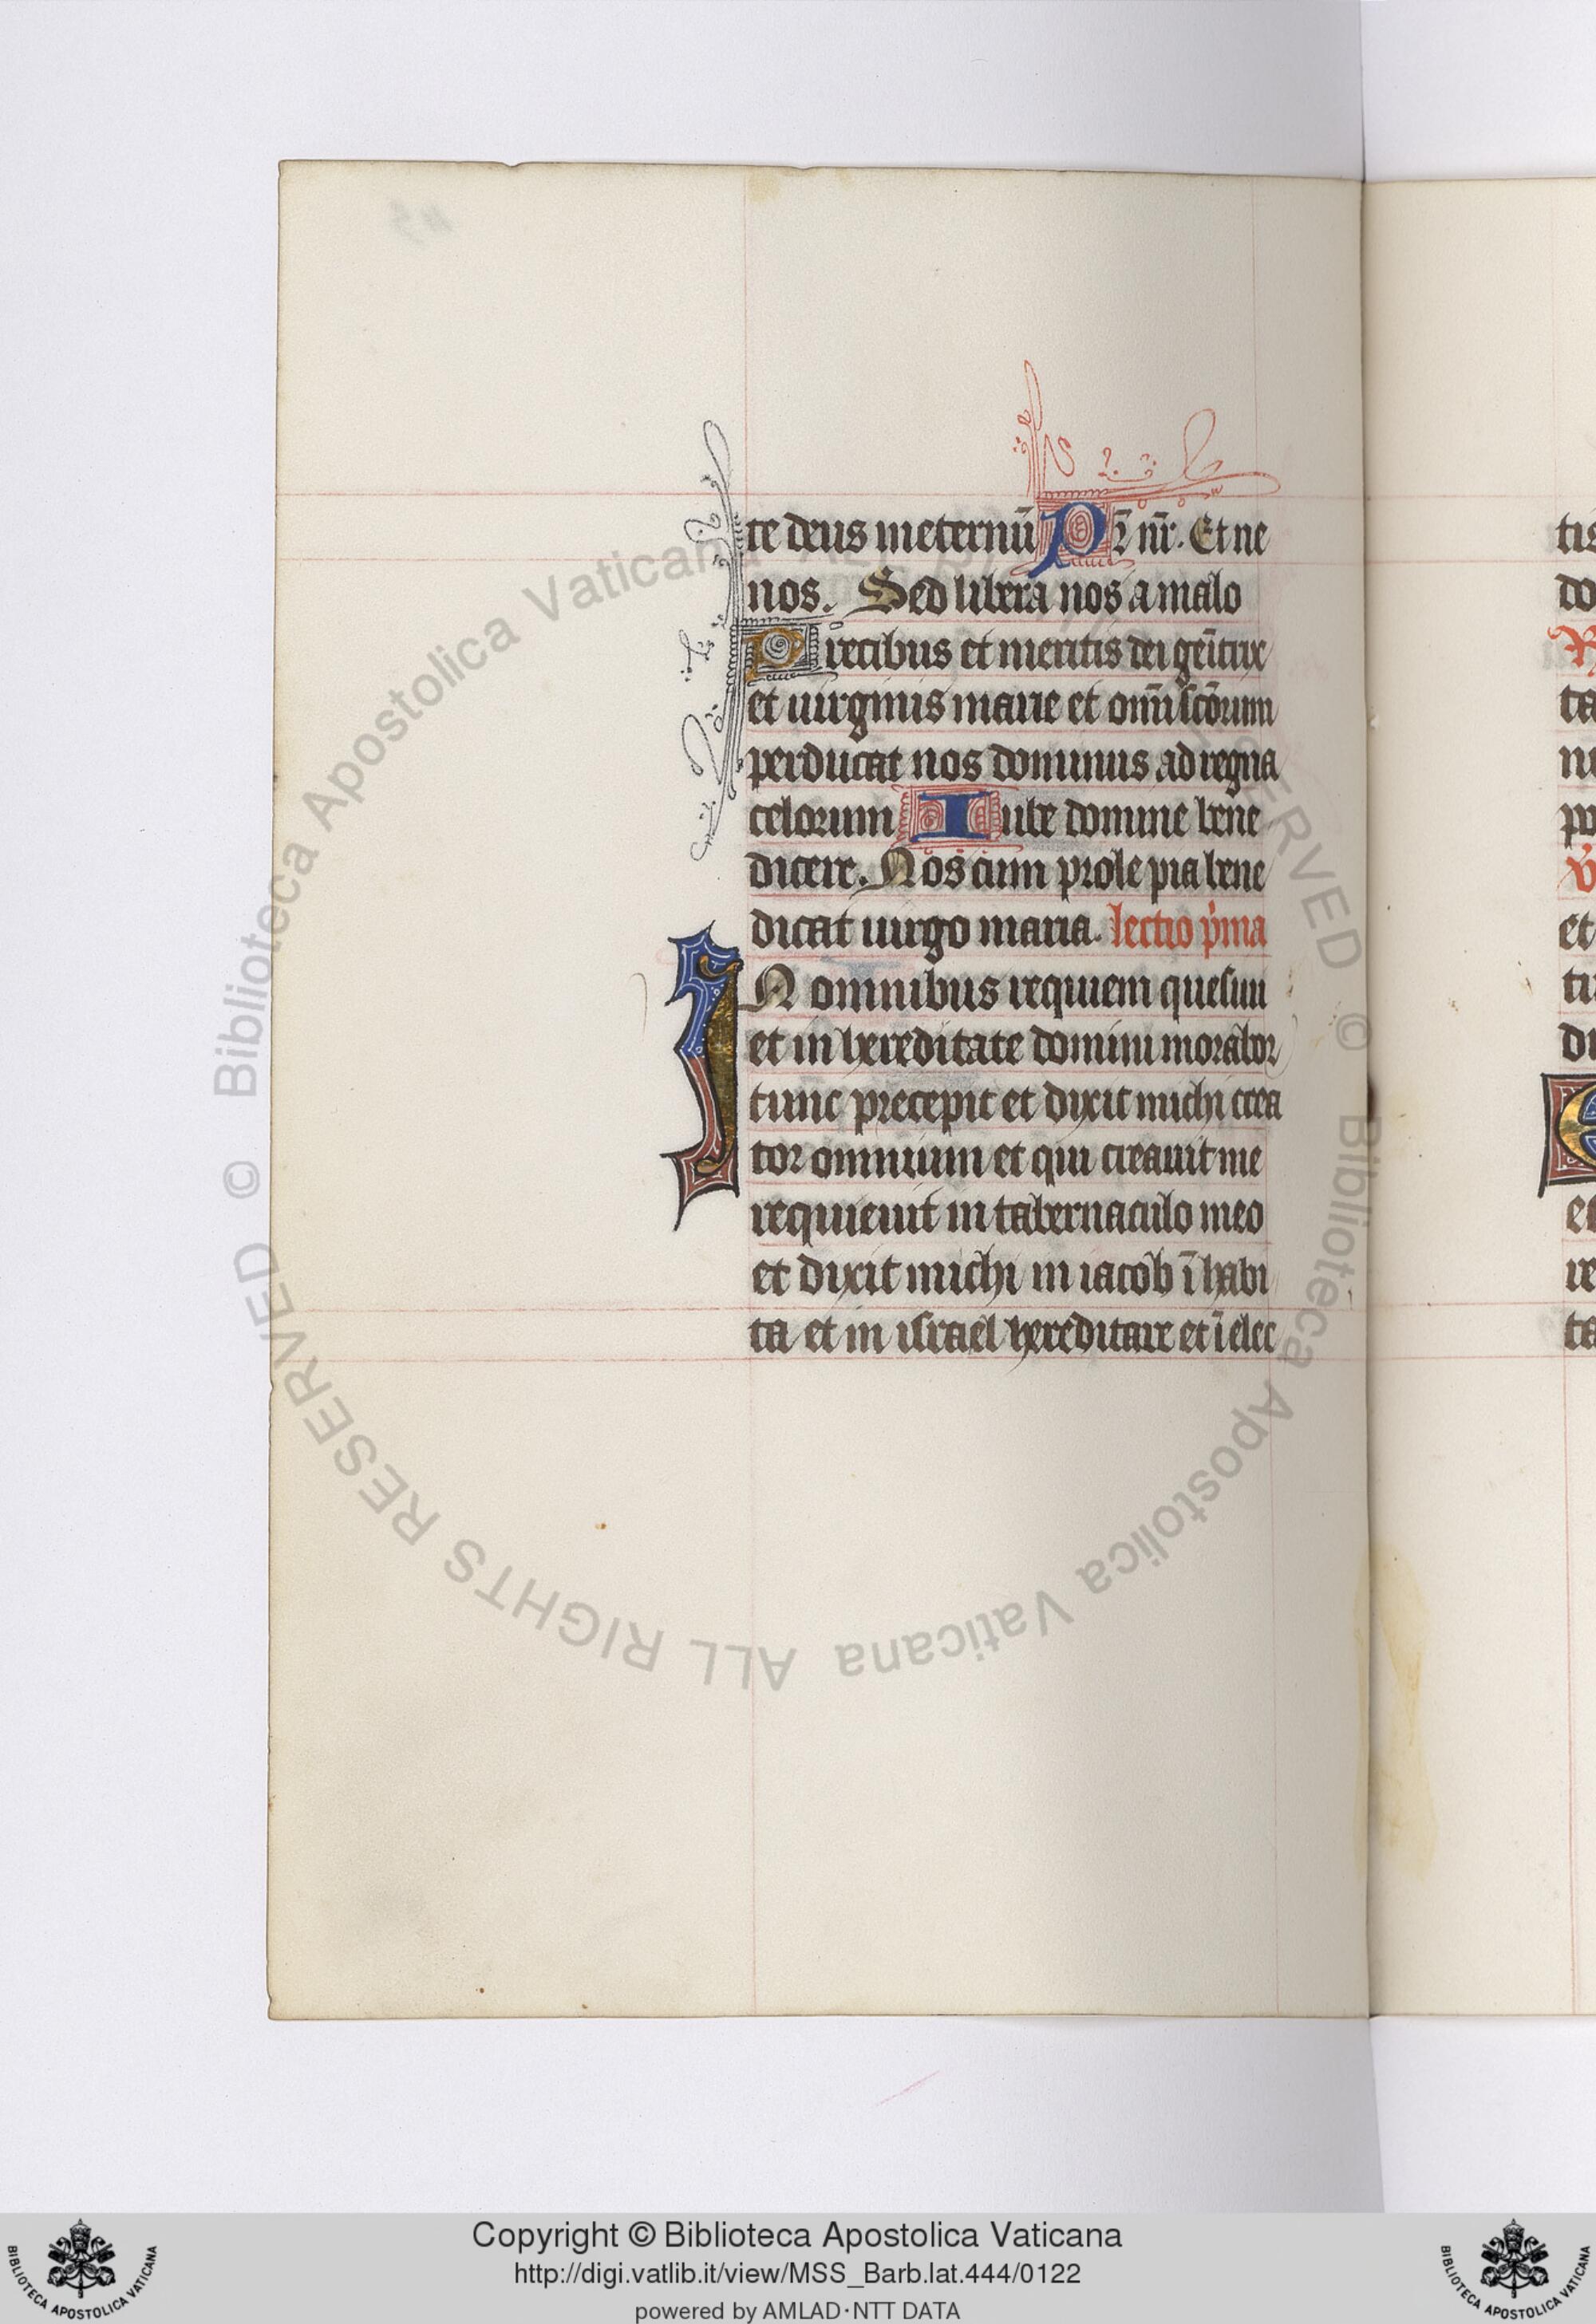 te deus ineternū Pr̄ nr̄. Et ne
nos. Sed libera nos a malo
Precibus et meritis dei gen̄itrix
et uirginis marie et om̄i sc̄orum
perducat nos dominus ad regna
celorum Iube domine bene
dicere. Nos cum prole pia bene
dicat uirgo maria. lectio p̄ma
IN omnibus requiem quesiui
et in hereditate domini morabor
tunc precepit et dixit michi crea
tor omnium et qui creauit me
requieuit in tabernaculo meo
et dixit michi in iacob ī habi
ta et in israel hereditare et ī elec
tis
do
R
ta
ni
po
et
ti
di
et
re
ta
© Biblioteca Apostolica Vaticana ALL RIGHTS RESERVED © Biblioteca Apostolica Vaticana ALL RIGHTS RESERVED
Copyright © Biblioteca Apostolica Vaticana
http://digi.vatlib.it/view/MSS_Barb.lat.444/0122
powered by AMLAD·NTT DATA
BIBLIOTECA APOSTOLICA VATICANA
BIBLIOTECA APOSTOLICA VATICANA